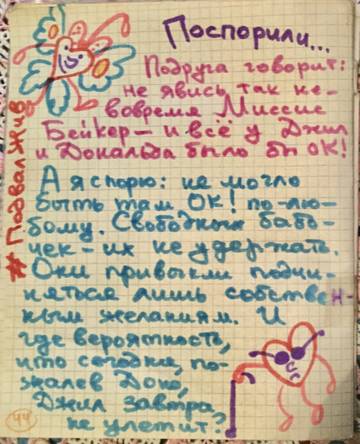 Поспорили...
Подруга говорит:
не явись так не-
вовремя Миссис
Бейкер – и всё у Джил
и Дональда было бы ОК!
А я спорю: не могло
быть там ОК! по-лю-
бому. Свободных бабо-
чек – их не удержать.
Они привыкли подчи-
няться лишь собствен-
ным желаниям. И
где вероятность,
что сегодня, по-
жалев Дона,
Джил завтра,
не улетит?
#ПодвалЖив
44